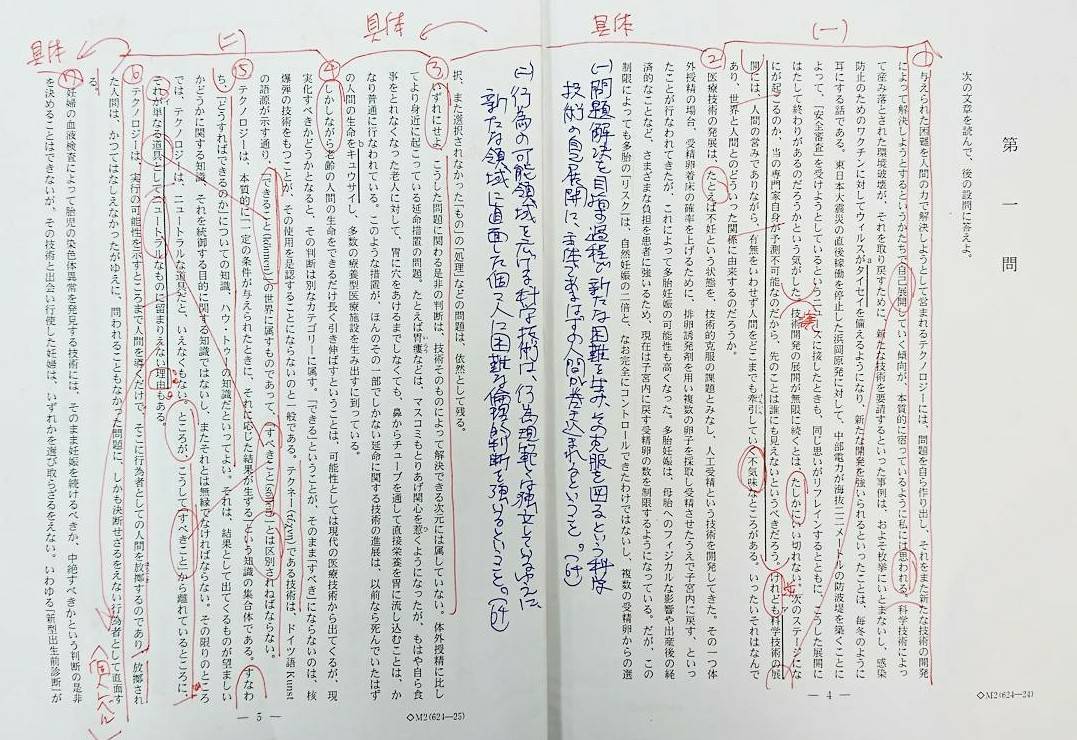 第一問
次の文章を読んで、後の設問に答えよ。
(一)
具体
①
与えられた困難を人間の力で解決しようとして営まれるテクノロジーには、問題を自ら作り出し、それをまた新たな技術の開発
によって解決しようとするというかたちで自己展開していく傾向が、本質的に宿っているように私には思われる。科学技術によっ
て産み落とされた環境破壊が、それを取り戻すために、新たな技術を要請するといった事例は、およそ枚挙にいとまないし、感染
防止のためのワクチンに対してウィルスがタイセイを備えるようになり、新たな開発を強いられるといったことは、毎冬のように
a
耳にする話である。東日本大震災の直後稼働を停止した浜岡原発に対して、中部電力が海抜二二メートルの防波堤を築くことに
よって、「安全審査」を受けようとしているというニュースに接したときも、同じ思いがリフレインするとともに、こうした展開に
はたして終わりがあるのだろうかという気がした。技術開発の展開が無限に続くとは、たしかにいい切れない。次のステージにな
にが起こるのか、当の専門家自身が予測不可能なのだから、先のことは誰にも見えないというべきだろう。けれども科学技術の展
ア
開には、人間の営みでありながら、有無をいわせず人間をどこまでも牽引していく不気味なところがある。いったいそれはなんで
けんいん
あり、世界と人間とのどういった関係に由来するのだろうか。
②
医療技術の発展は、たとえば不妊という状態を、技術的克服の課題とみなし、人工受精という技術を開発してきた。その一つ体
外授精の場合、受精卵着床の確率を上げるために、排卵誘発剤を用い複数の卵子を採取し受精させたうえで子宮内に戻す、といっ
たことが行なわれてきたが、これによって多胎妊娠の可能性も高くなった。多胎妊娠は、母胎へのフィジカルな影響や出産後の経
済的なことなど、さまざまな負担を患者に強いるため、現在は子宮内に戻す受精卵の数を制限するようになっている。だが、この
制限によっても多胎の「リスク」は、自然妊娠の二倍と、なお完全にコントロールできたわけではないし、複数の受精卵からの選
(一)問題解決を目指す過程で新たな困難を生み、その克服を図るという科学
技術の自己展開に、主体であるはずの人間が巻き込まれるということ。(64)
— 4 —
◇M2(624—24)
(二)行為の可能領域を広げる科学技術は、行為規範とは独立しているゆえに、
新たな領域に直面した個々人に困難な倫理的判断を強いるということ。(64)
具体
(二)
具体
択、また選択されなかった「もの」の「処理」などの問題は、依然として残る。
③
いずれにせよ、こうした問題に関わる是非の判断は、技術そのものによって解決できる次元には属していない。体外授精に比し
てより身近に起こっている延命措置の問題。たとえば胃瘻などは、マスコミもとりあげ関心を惹くようになったが、もはや自ら食
いろう
ひ
事をとれなくなった老人に対して、胃に穴をあけるまでしなくても、鼻からチューブを通して直接栄養を胃に流し込むことは、か
なり普通に行なわれている。このような措置が、ほんのその一部でしかない延命に関する技術の進展は、以前なら死んでいたはず
の人間の生命をキュウサイし、多数の療養型医療施設を生み出すに到っている。
b
④
しかしながら老齢の人間の生命をできるだけ長く引き伸ばすということは、可能性としては現代の医療技術から出てくるが、現
実化すべきかどうかとなると、その判断は別なカテゴリーに属す。「できる」ということが、そのまま「すべき」にならないのは、核
爆弾の技術をもつことが、その使用を是認することにならないのと一般である。テクネー(τέχνη)である技術は、ドイツ語 Kunst
の語源が示す通り、「できること(können)」の世界に属すものであって、「すべきこと(sollen)」とは区別されねばならない。
⑤
テクノロジーは、本質的に「一定の条件が与えられたときに、それに応じた結果が生ずる」という知識の集合体である。すなわ
ち、「どうすればできるのか」についての知識、ハウ・トゥーの知識だといってよい。それは、結果として出てくるものが望ましい
かどうかに関する知識、それを統御する目的に関する知識ではないし、またそれとは無縁でなければならない。その限りのところ
では、テクノロジーは、ニュートラルな道具だと、いえなくもない。ところが、こうして「すべきこと」から離れているところに、
それが単なる道具としてニュートラルなものに留まりえない理由もある。
⑥
テクノロジーは、実行の可能性を示すところまで人間を導くだけで、そこに行為者としての人間を放擲するのであり、放擲され
た人間は、かつてはなしえなかったがゆえに、問われることもなかった問題に、しかも決断せざるをえない行為者として直面す
る。
〈個人レベル〉
⑦
妊婦の血液検査によって胎児の染色体異常を発見する技術には、そのまま妊娠を続けるべきか、中絶すべきかという判断の是非
を決めることはできないが、その技術と出会い行使した妊婦は、いずれかを選び取らざるをえない。いわゆる「新型出生前診断」が
— 5 —
◇M2(624—25)